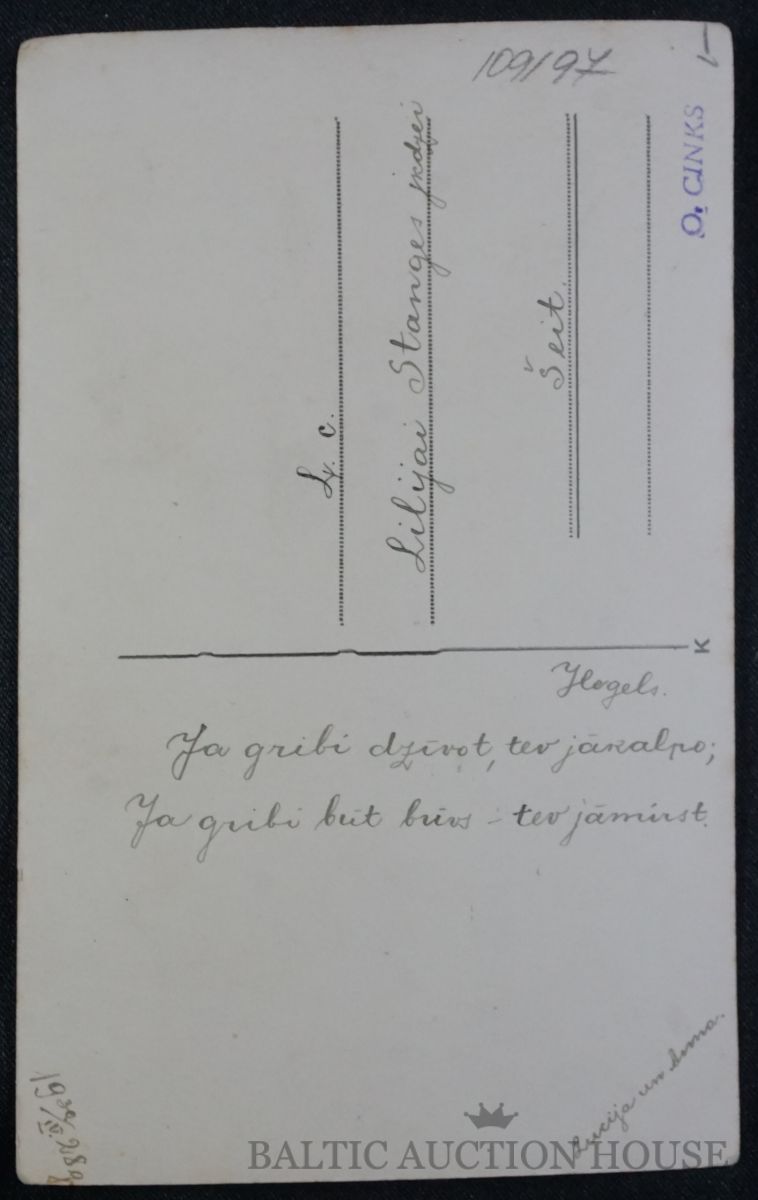 109/97
O. CINKS
Lv. c.
Lilijai Stanges jkdzei
Šeit.
K
Hegels.
Ja gribi dzīvot, tev jākalpo;
Ja gribi būt būvs - tev jāmirst.
Lucija un
BALTIC AUCTION HOUSE